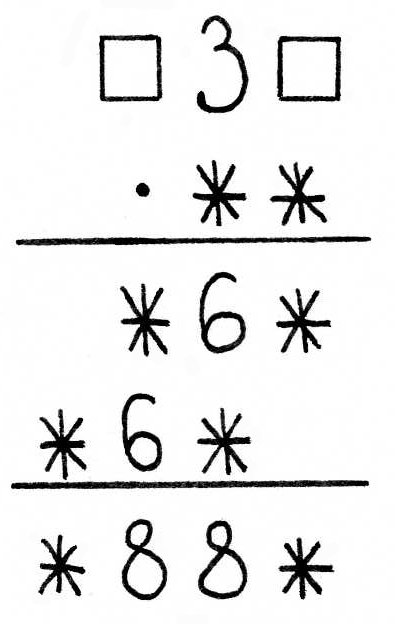 □ 3 □
· * *
* 6 *
* 6 *
* 8 8 *